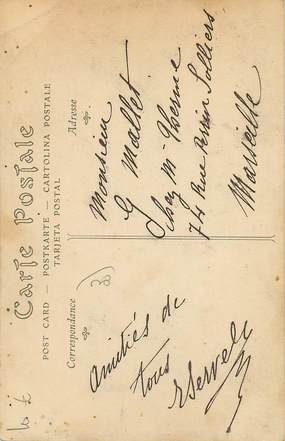 Carte Postale
POST CARD — POSTKARTE — CARTOLINA POSTALE
TARJETA POSTAL
Correspondance
Adresse
amitiés de
tous
Monsieur
G Mallet
chez Mr
74 Rue Solliers
Marseille
3